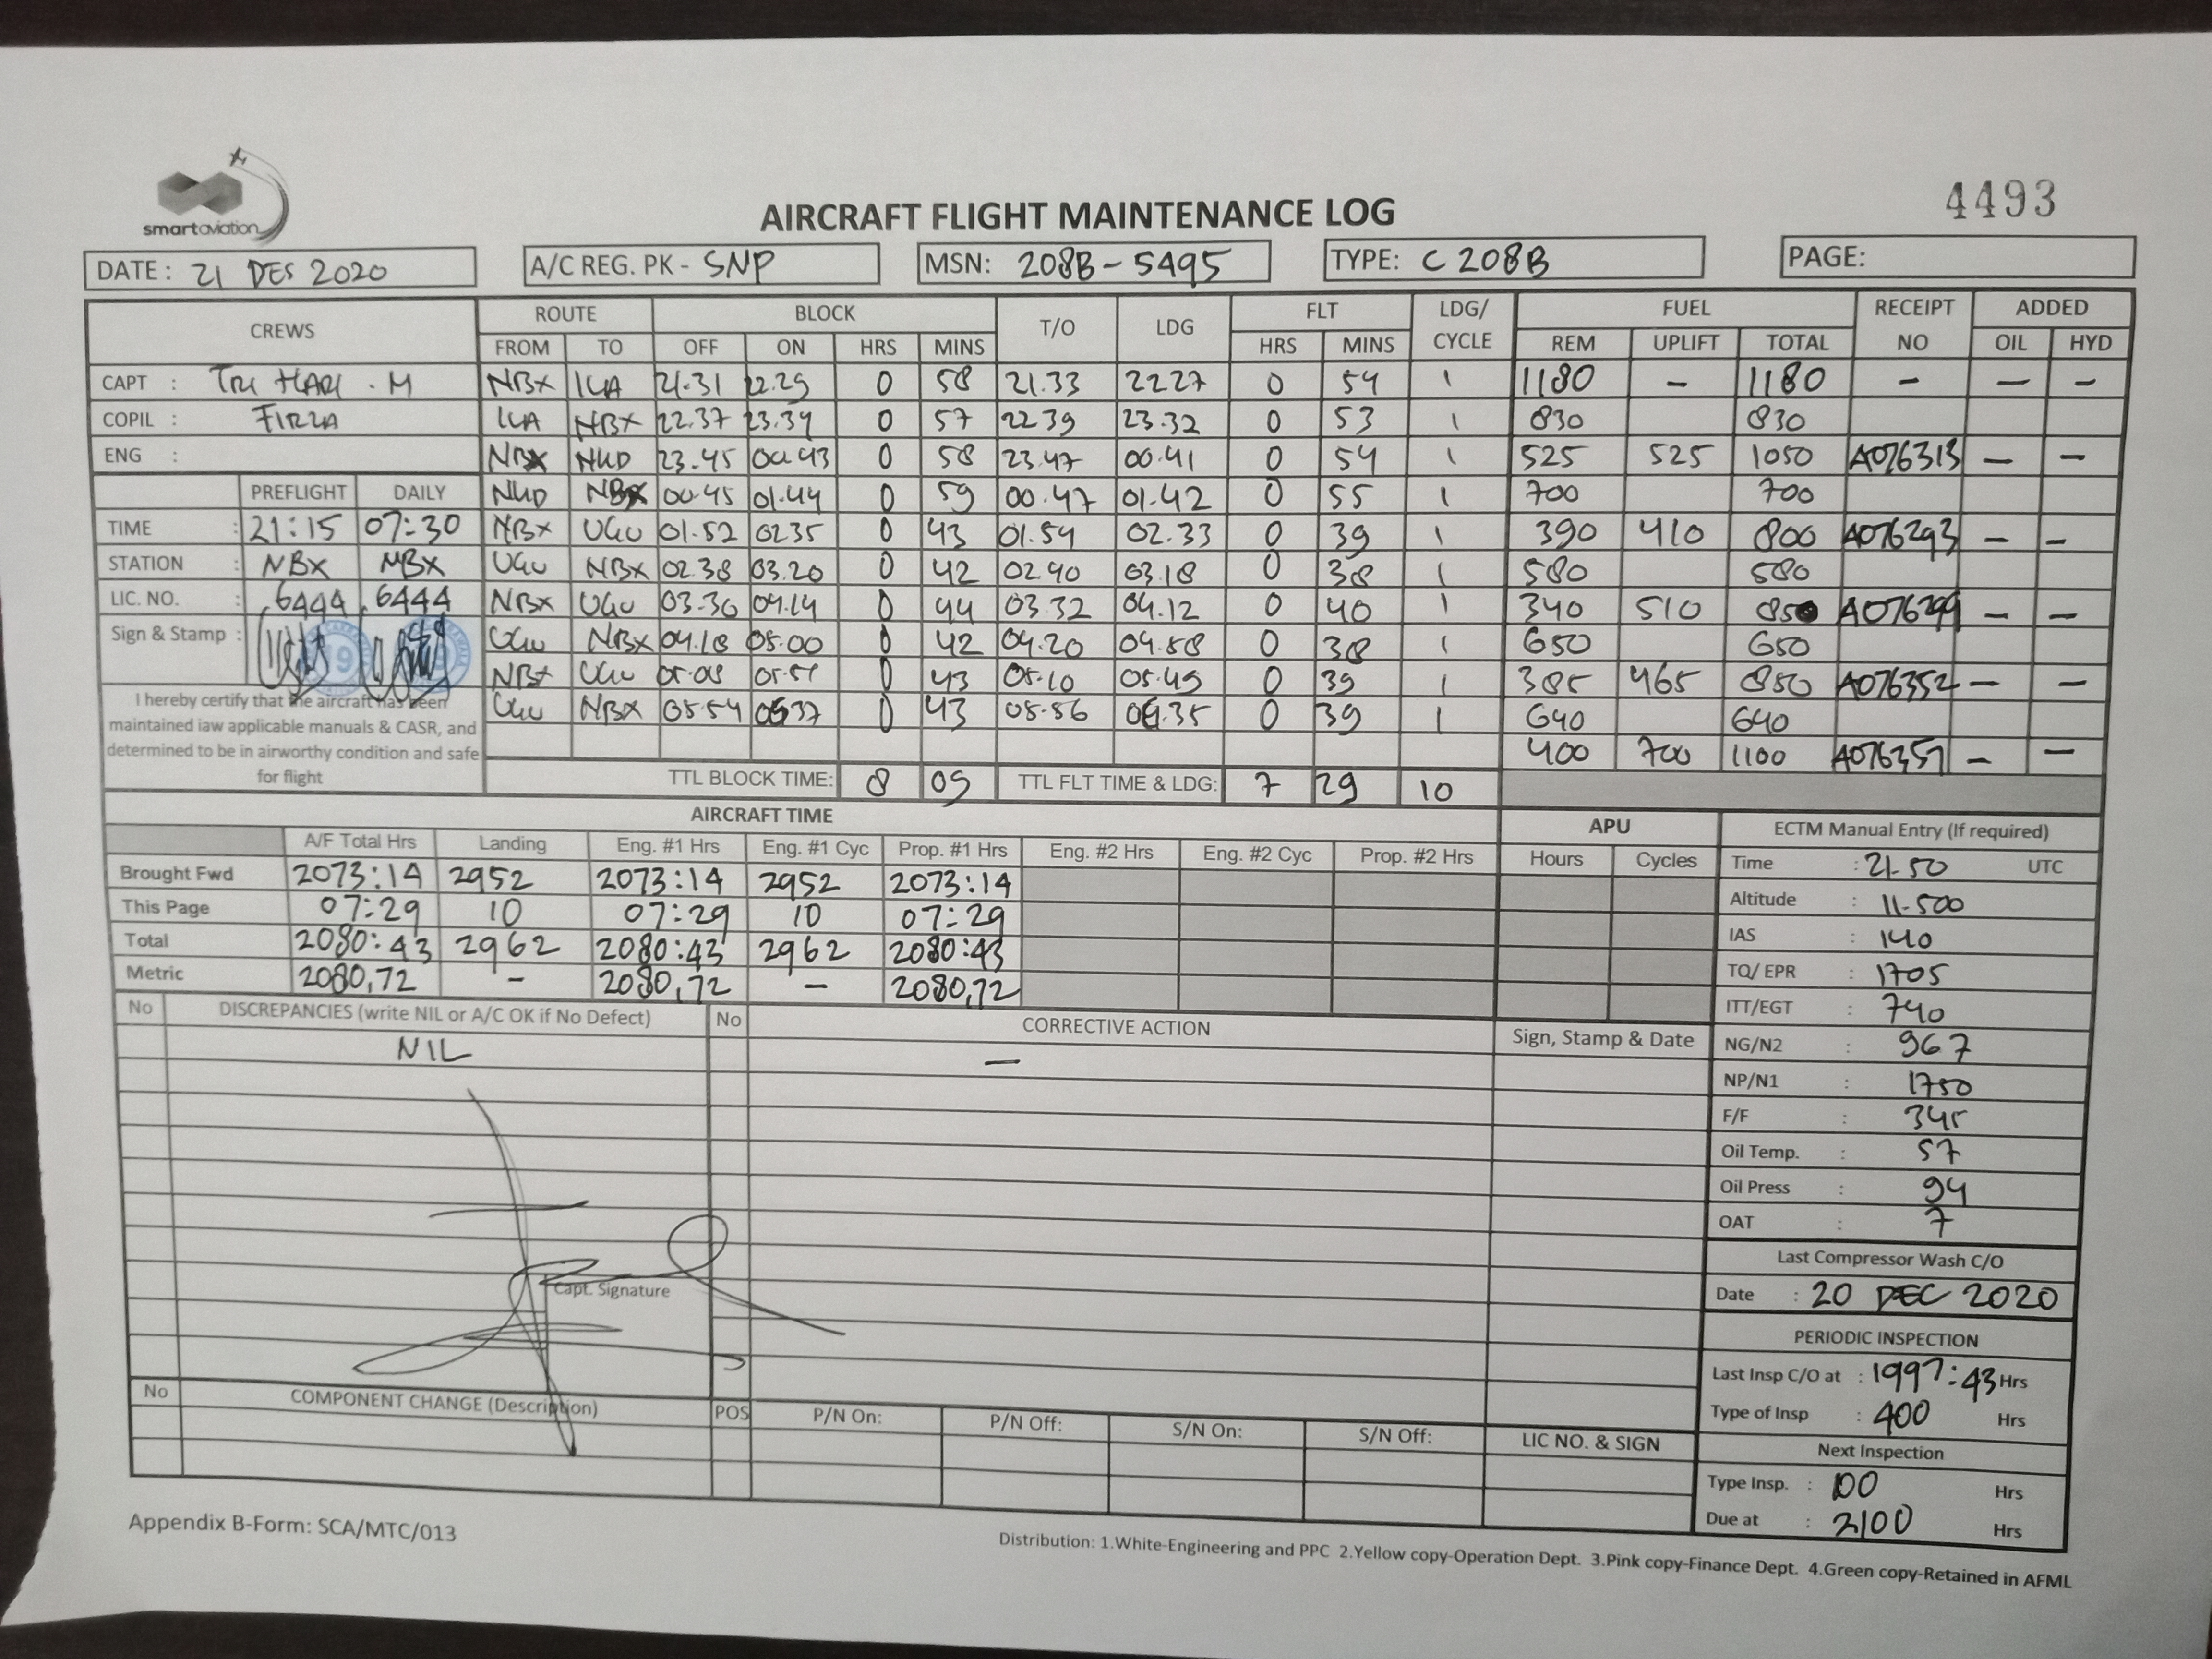 smartaviation
AIRCRAFT FLIGHT MAINTENANCE LOG
4493
DATE : 21 DES 2020
A/C REG. PK - SNP
MSN: 208B-5495
TYPE: C 208B
PAGE:
CREWS ROUTE BLOCK T/O LDG FLT LDG/ CYCLE FUEL RECEIPT NO ADDED
FROM TO OFF ON HRS MINS HRS MINS REM UPLIFT TOTAL OIL HYD
CAPT : TRI HARI . M
COPIL : FIRZA
ENG :
NBX ILA 21.31 22.29 0 58 21.33 2227 0 54 1 1180 - 1180 - - -
ILA NBX 22.37 23.34 0 57 2239 23.32 0 53 1 830 830
NBX NKD 23.45 00.43 0 58 23.47 00.41 0 54 1 525 525 1050 A076313 - -
NKD NBX 00.45 01.44 0 59 00.47 01.42 0 55 1 700 700
NBX UGU 01.52 0235 0 43 01.54 02.33 0 39 1 390 410 800 A076293 - -
UGU NBX 02.38 03.20 0 42 02.40 03.18 0 38 1 580 580
NBX UGU 03.30 04.14 0 44 03.32 04.12 0 40 1 340 510 850 A076299 - -
UGU NBX 04.18 05.00 0 42 04.20 04.58 0 38 1 650 650
NBX UGU 05.08 05.51 0 43 05.10 05.49 0 39 1 385 465 850 A076352 - -
UGU NBX 05.54 0637 0 43 05.56 06.35 0 39 1 640 640
400 700 1100 A076357 - -
PREFLIGHT DAILY
TIME : 21:15 07:30
STATION : NBX NBX
LIC. NO. : 6444 6444
Sign & Stamp :
I hereby certify that the aircraft has been
maintained iaw applicable manuals & CASR, and
determined to be in airworthy condition and safe
for flight
TTL BLOCK TIME: 8 09 TTL FLT TIME & LDG: 7 29 10
AIRCRAFT TIME
A/F Total Hrs Landing Eng. #1 Hrs Eng. #1 Cyc Prop. #1 Hrs Eng. #2 Hrs Eng. #2 Cyc Prop. #2 Hrs
Brought Fwd 2073:14 2952 2073:14 2952 2073:14
This Page 07:29 10 07:29 10 07:29
Total 2080:43 2962 2080:43 2962 2080:43
Metric 2080,72 - 2080,72 - 2080,72
APU
Hours Cycles
ECTM Manual Entry (If required)
Time : 21.50 UTC
Altitude : 11.500
IAS : 140
TQ/ EPR : 1705
ITT/EGT : 740
NG/N2 : 967
NP/N1 : 1750
F/F : 345
Oil Temp. : 57
Oil Press : 94
OAT : 7
Last Compressor Wash C/O
Date : 20 DEC 2020
PERIODIC INSPECTION
Last Insp C/O at : 1997:43 Hrs
Type of Insp : 400 Hrs
Next Inspection
Type Insp. : 100 Hrs
Due at : 2100 Hrs
No DISCREPANCIES (write NIL or A/C OK if No Defect) No CORRECTIVE ACTION Sign, Stamp & Date
NIL -
Capt. Signature
No COMPONENT CHANGE (Description) POS P/N On: P/N Off: S/N On: S/N Off: LIC NO. & SIGN
Appendix B-Form: SCA/MTC/013
Distribution: 1.White-Engineering and PPC 2.Yellow copy-Operation Dept. 3.Pink copy-Finance Dept. 4.Green copy-Retained in AFML